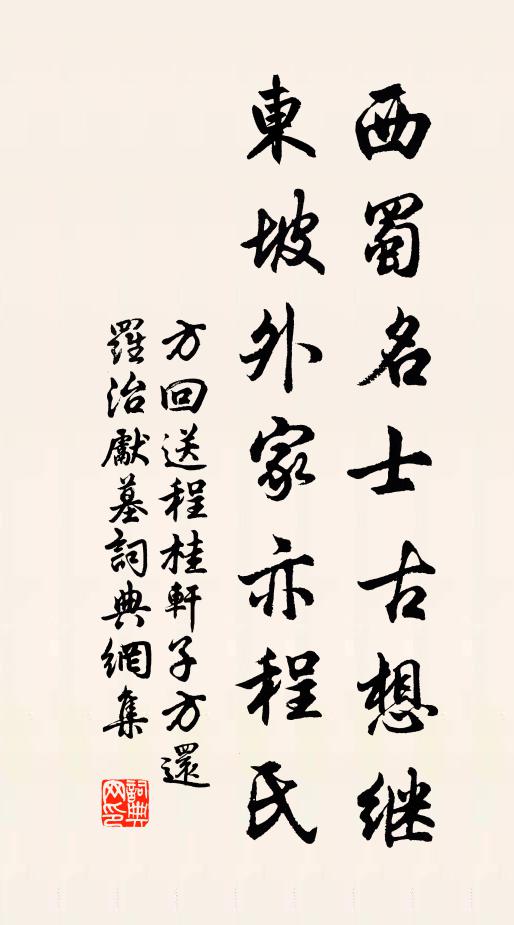 西蜀名士古想继
東坡外家亦程氏
方回送程桂軒子方還
羅治獻墓詞典網集
詞典网印